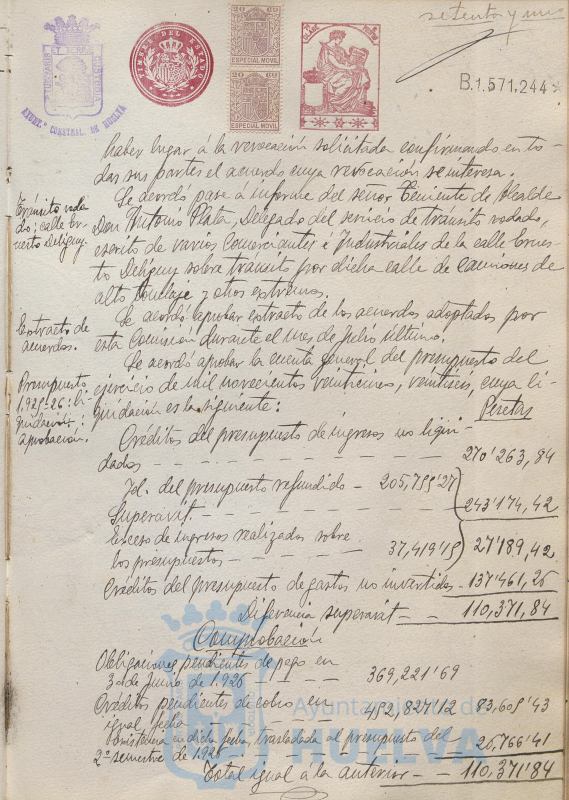 setenta y uno
TIMBRE DEL ESTADO
20 20
ESPECIAL MOVIL
20 20
ESPECIAL MOVIL
B.1.571.244
AYUNT.º CONSTNAL. DE HUELVA
haber lugar á la revocación solicitada confirmando en to-
das sus partes el acuerdo cuya revocación se interesa.
Tránsito roda-
do: calle Er-
nesto Deligny.
Se acordó pase á informe del señor Teniente de Alcalde
Don Antonio Plata, Delegado del servicio de tránsito rodado,
escrito de varios Comerciantes é Industriales de la calle Ernes-
to Deligny sobre tránsito por dicha calle de camiones de
alto tonelaje y otros extremos.
Extracto de
acuerdos.
Se acordó aprobar extracto de los acuerdos adoptados por
esta Comisión durante el mes de Julio último.
Presupuesto
1.925-26: li-
quidación:
aprobación.
Se acordó aprobar la cuenta general del presupuesto del
ejercicio de mil novecientos veinticinco, veintiseis, cuya li-
quidación es la siguiente:
Pesetas
Créditos del presupuesto de ingresos no liqui-
dados - - - - 270'263,84
Id. del presupuesto refundido - 205,755'27
Superávit - - - - 243'174,42
Exceso de ingresos realizados sobre
los presupuestos - - - 37,419'15 27'189,42
Créditos del presupuesto de gastos no invertidos - 137'461,26
Diferencia superavit - - 110,371,84
Comprobación
Obligaciones pendientes de pago en
30 de Junio de 1.926 - - 369,221'69
Créditos pendientes de cobro en
igual fecha - - 452,827'12 83,605'43
Existencia en dicha fecha, trasladada al presupuesto del
2º semestre de 1.926 - - 26,766'41
Total igual á la anterior - - 110,371'84
Ayuntamiento de
HUELVA